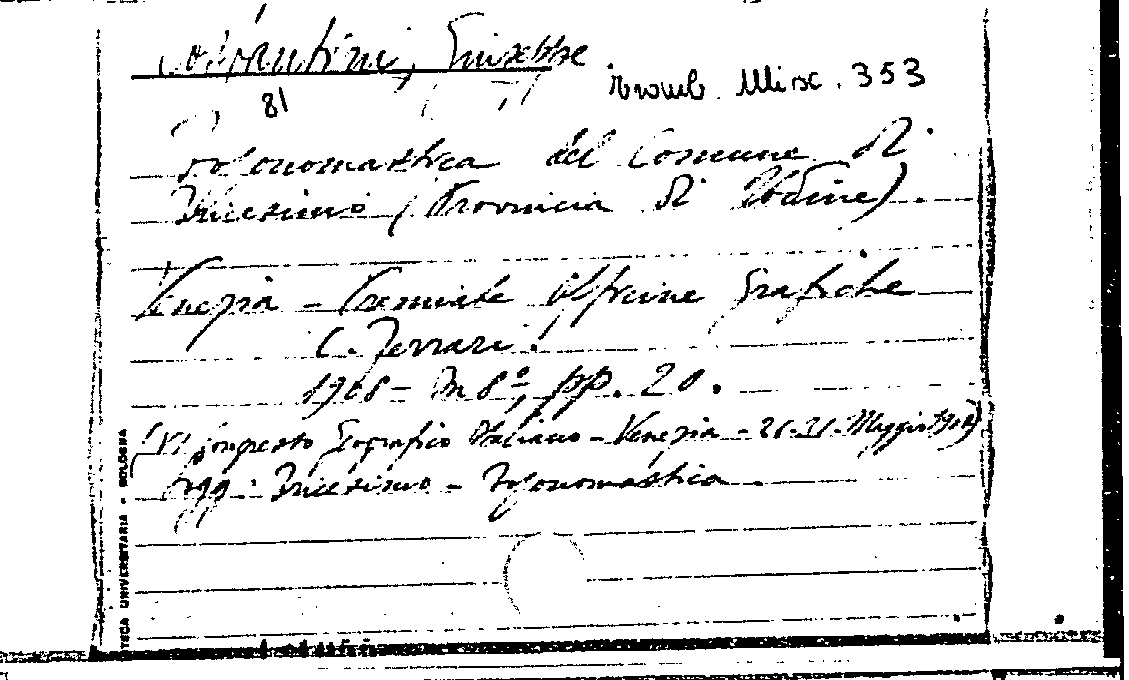 Costantini, Giuseppe
81 Tromb. Misc. 353
Toponomastica del Comune di
Tricesimo (Provincia di Udine).
Venezia - Premiate Officine Grafiche
C. Ferrari.
1908 - In 8º, pp. 20.
(VI Congresso Geografico Italiano - Venezia - 26-31 Maggio 1907)
Sogg. Tricesimo - Toponomastica.
UNIVERSITARIA - BOLOGNA